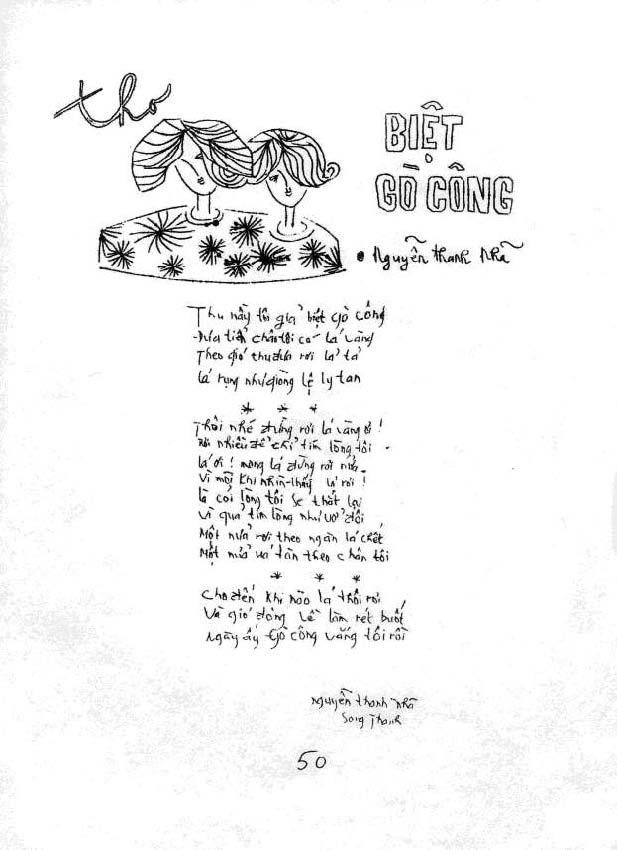 thơ
BIỆT
GÒ CÔNG
• Nguyễn Thanh Nhã
Thu nầy tôi giả biệt Gò Công
Đưa tiển chân tôi có lá vàng
Theo gió thu đưa rơi lả tả
Lá rụng như giòng lệ ly tan
* * *
Thôi nhé đừng rơi lá vàng ơi !
Rơi nhiều để chỉ tím lòng tôi
Lá ơi ! mong lá đừng rơi nữa
Vì mỗi khi nhìn thấy lá rơi !
Là cỏi lòng tôi se thắt lại
Vì quả tim lòng như vở đôi
Một nửa rơi theo ngàn lá chết
Một nửa vá tàn theo chân tôi
* * *
Cho đến khi nào lá thôi rơi
Và gió đông về làm rét buốt
Ngày ấy Gò Công vắng tôi rồi
Nguyễn Thanh Nhã
Song Thanh
50